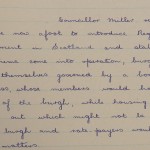 Councillor Miller
now afoot to introduce Reg
ment in Scotland and
come into operation,
themselves governed by a bo
, whose members would ha
of the burgh, while housing
out which might not be
burgh and rate-payers would
matters